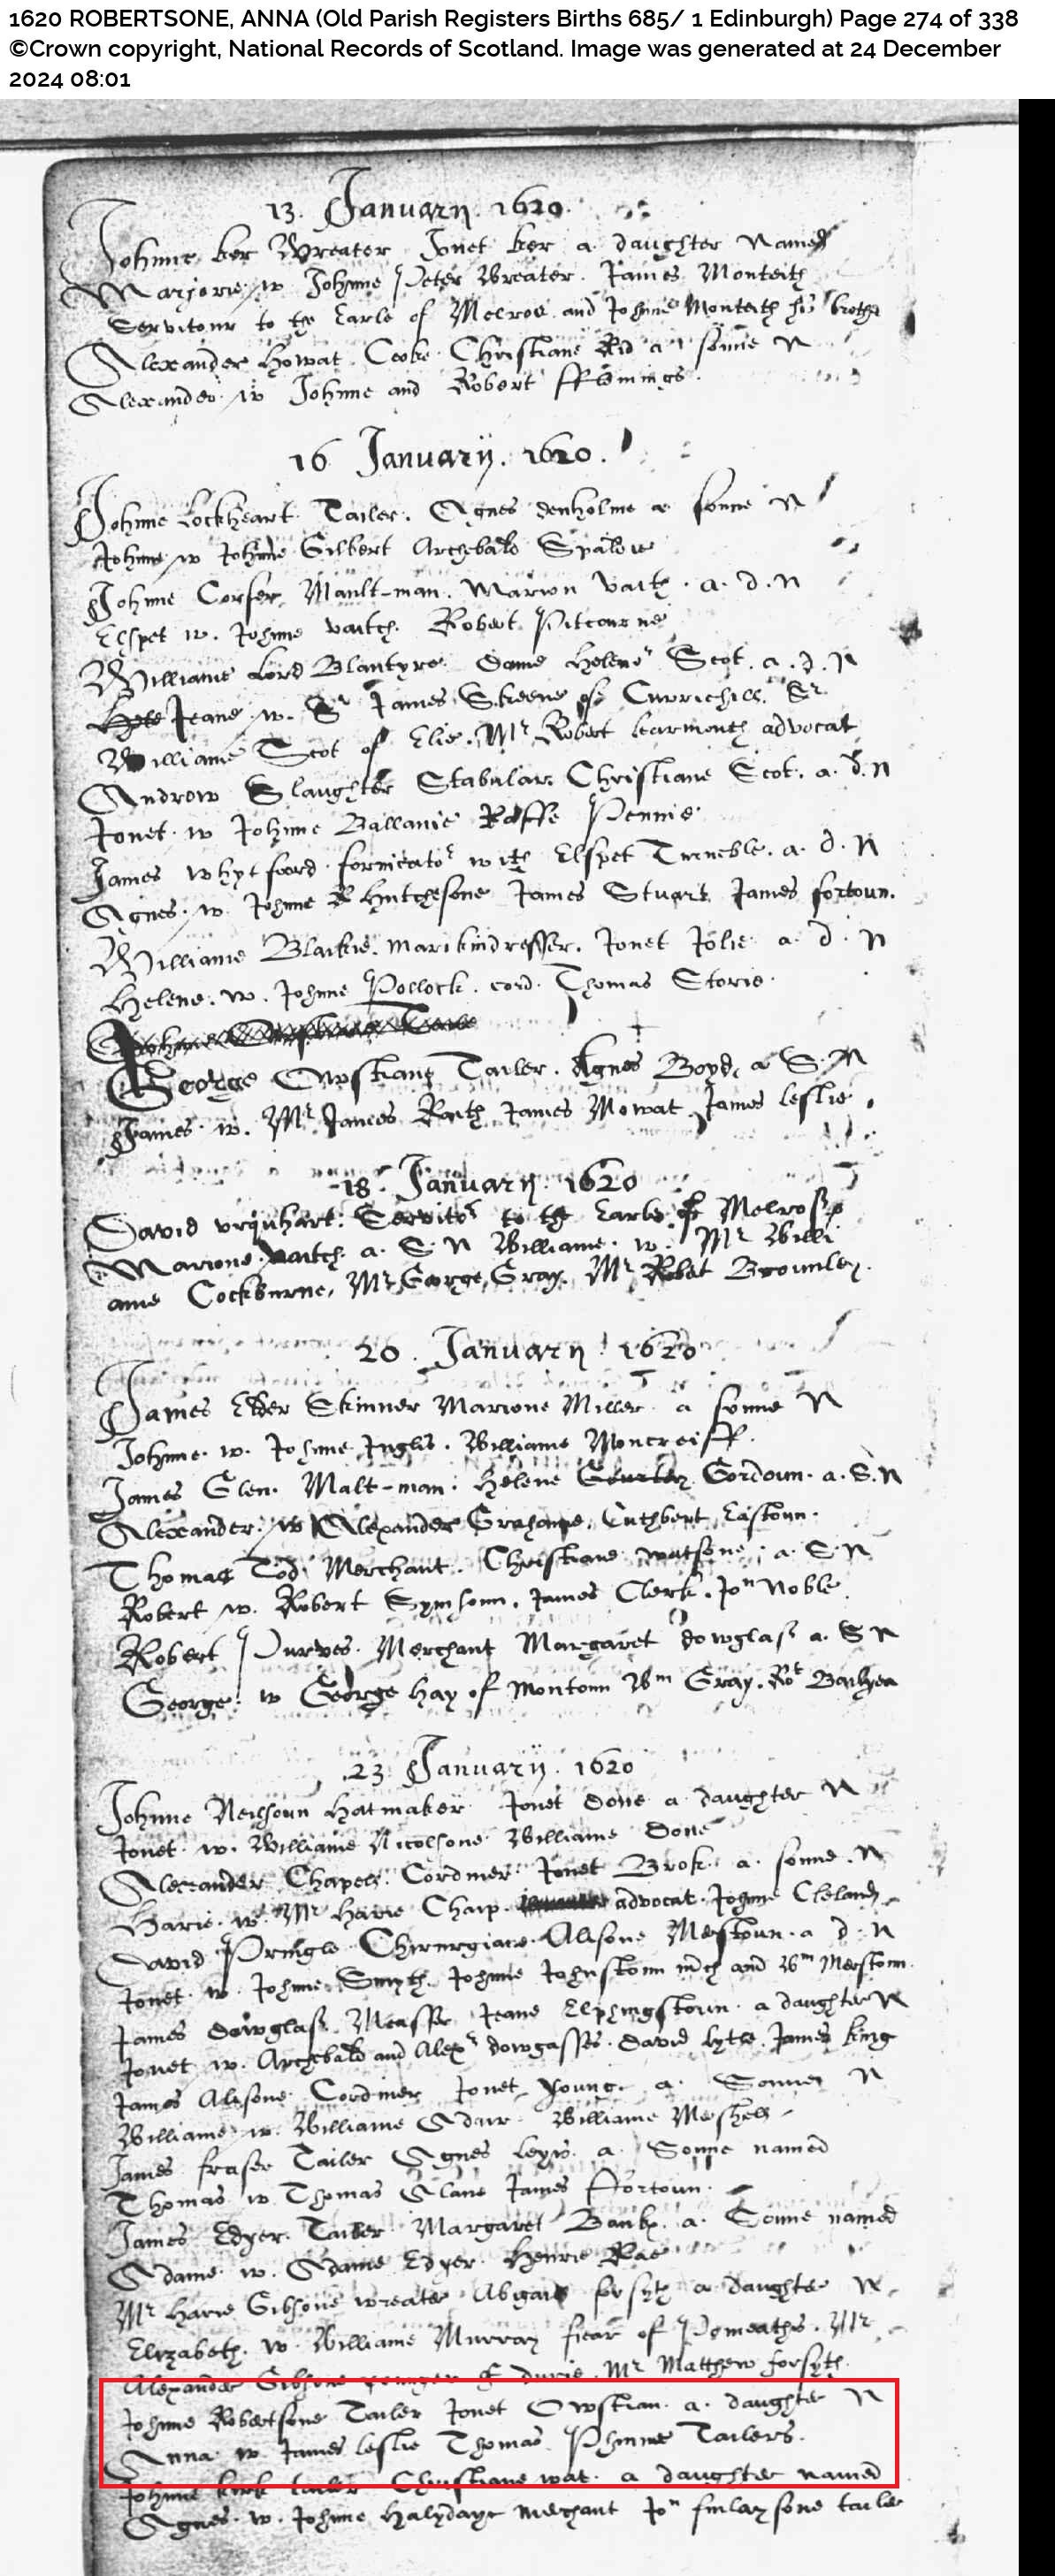 1620 ROBERTSONE, ANNA (Old Parish Registers Births 685/ 1 Edinburgh) Page 274 of 338
©Crown copyright, National Records of Scotland. Image was generated at 24 December
2024 08:01
13. Januarij. 1620.
Johnne ker Wreater Jonet ker a daughter Named
Marjorie w Johnne Peter Wreater. James Monteith
Servitour to the Earle of Melros and Johnne Monteith his brother
Alexander Howat Cooke Christiane Rid a sonne N
Alexander w Johnne and Robert fflemings.
16 Januarij. 1620.
Johnne Lockheart Tailer. Agnes denholme a sonne N
Johnne w Johnne Gilbert Archbald Spaldie
Johnne Corser Mault-man. Marion vaitch. a. d. N
Elspet w. Johnne vaitch. Robert Pitcairne
Williame Lord Blantyre Dame Helene Scot. a. d. N
Jeane w. Sr James Skeene of Currichill. Sr.
Williame Scot of Elie. Mr Robert Learmonth advocat
Andrew Slaughter Stabular. Christiane Scot. a. d. N
Jonet w Johnne Ballanie Pennie
James whytfoord fornicator with Elspet Turneble. a. d. N
Agnes. w. Johnne Hutchesone James Stuart James fortoun.
Williame Blaikie. Jonet Jolie a d. N
Helene. w. Johnne Pollock. cord. Thomas Storie.
George Owstiane Tailer. Agnes Boyd, a S. N
James. w. Mr James Raith James Mowat James Leslie.
18. Januarij. 1620
David vrquhart. Servitor to the Earle of Melrose
Marione vaitch. a. S. N Williame. w. Mr Willi
ame Cockburne, Mr George Gray. Mr Robert Brounley.
20. Januarij. 1620
James Elder Skinner Marione Miller a sonne N
Johnne. w. Johnne Inglis. Williame Moncreiff.
James Glen. Malt-man. Helene Gordoun. a. S. N
Alexander. w Alexander Grahame, Cuthbert Eastoun.
Thomas Tod Merchant. Christiane watsone. a. S. N
Robert w. Robert Symsoun. James Clerk. Jon Noble
Robert Purves. Merchant Margaret dowglas a. S N
George. w George Hay of Montoun Wm Gray. Rot
23 Januarij. 1620
Johnne Neilsoun Hatmaker Jonet Done a daughter N
Jonet. w. Williame Nicolsone Williame Done
Alexander Chapell. Cordiner Jonet Brok. a. sonne. N
Harie. w. Mr Harie Chaip. advocat. Johnne Cleland.
David Pringle Chirurgiane. Alisone Merstoun. a d. N
Jonet w. Johnne Smyth. Johnne Johnstoun and Wm Merstoun.
James Dowglas. Jeane Elphingstoun. a daughter N
Jonet w. Archbald and Alexr dowglasses. David Lytle James king
James Alisone Cordiner Jonet Young. a. Sonne N
Williame. w. Williame Adair Williame Mershell
James fraser Tailer Agnes a Sonne named
Thomas w Thomas James ffortoun.
James Edzer. Tailer Margaret Bank. a. Sonne named
Adame. w. Adame Edzer. Henrie Rae
Mr Harie Gibsone wreater Abigail forsyth a daughter N.
Elizabeth. w. Williame Murray fiear of Mr
Alexander Gibsone younger of durie. Mr Matthew forsyth.
Johnne Robertsone Tailer Jonet Owstian. a. daughter N
Anna w. James leslie Thomas Phinnie Tailers.
Johnne kirk tailer Christiane wat. a daughter named
Agnes. w. Johnne Halydaye merchant Jon finlaysone tailer